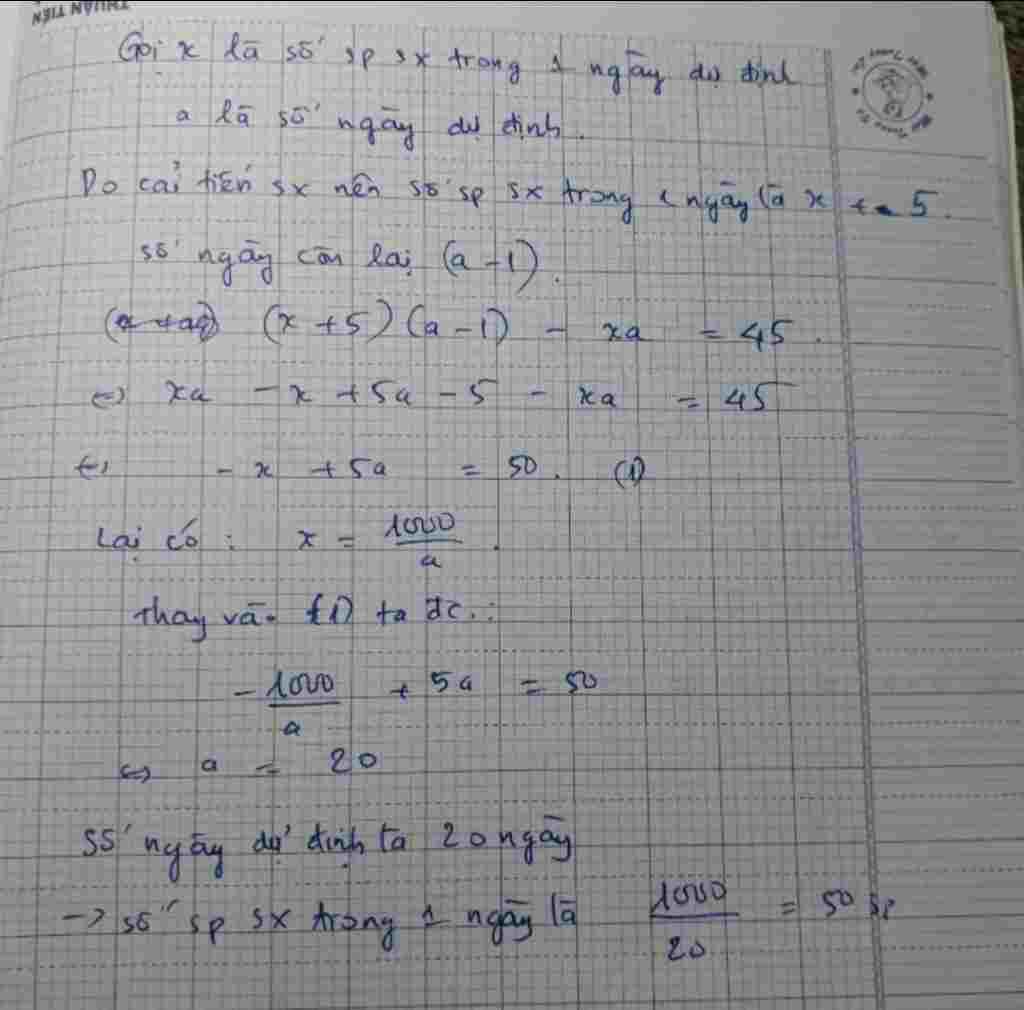 THUẬN TIẾN
Gọi x là số sp sx trong 1 ngày dự định
a là số ngày dự định.
Do cải tiến sx nên số sp sx trong 1 ngày là x + 5.
số ngày còn lại (a - 1).
(x + 5)(a - 1) - xa = 45.
<=> xa - x + 5a - 5 - xa = 45
<=> - x + 5a = 50. (1)
Lại có : x = 1000/a.
Thay vào (1) ta đc :
- 1000/a + 5a = 50
<=> a = 20
Số ngày dự định là 20 ngày
-> số sp sx trong 1 ngày là 1000/20 = 50 sp